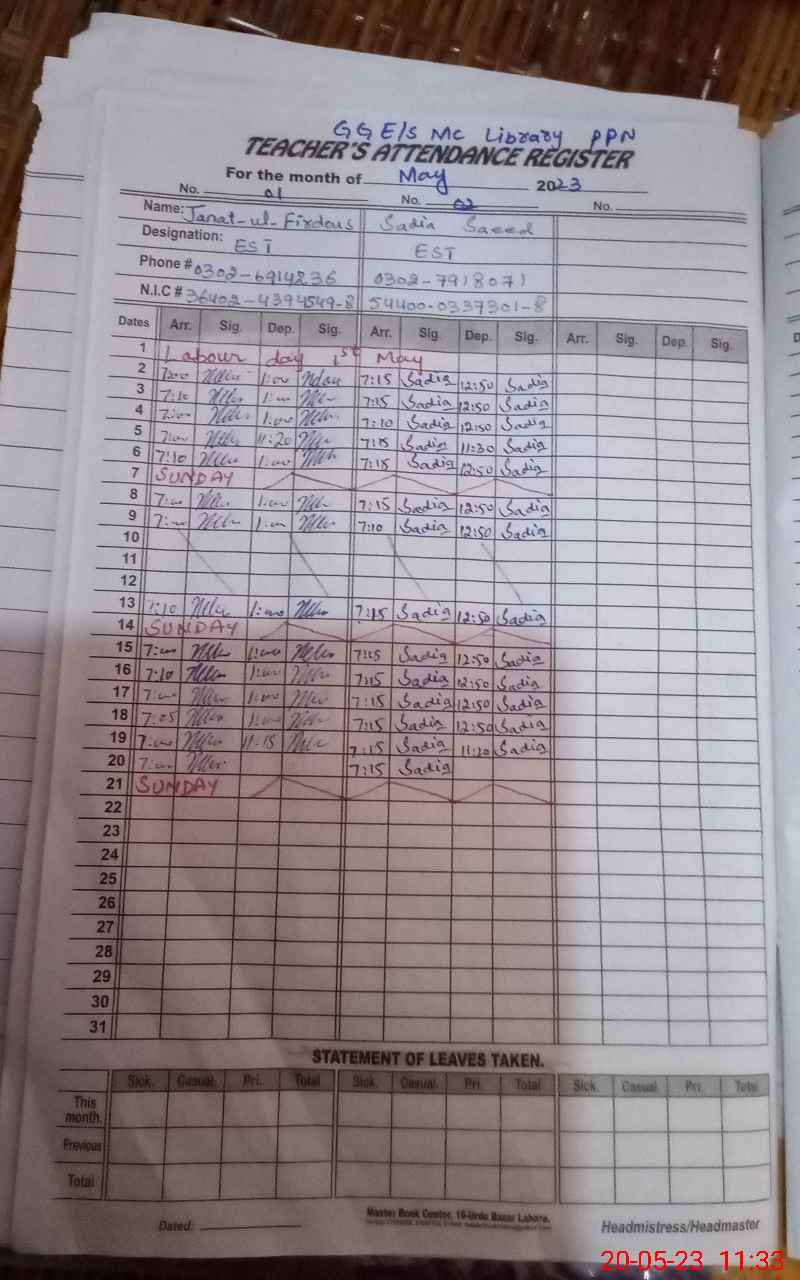 GGE/S MC Library PPN
TEACHER'S ATTENDANCE REGISTER
For the month of May 2023
No. 01 No. 02 No.
Name: Janat-ul-Firdous Sadia Saeed
Designation: EST EST
Phone # 0302-6914236 0302-7918071
N.I.C # 36402-4394549-8 54400-0337301-8
Dates Arr. Sig. Dep. Sig. Arr. Sig. Dep. Sig. Arr. Sig. Dep. Sig.
1 Labour day 1st May
2 7:00 1:00 7:15 Sadia 12:50 Sadia
3 7:10 1:00 7:15 Sadia 12:50 Sadia
4 7:00 1:00 7:10 Sadia 12:50 Sadia
5 7:00 11:20 7:15 Sadia 11:30 Sadia
6 7:10 1:00 7:15 Sadia 12:50 Sadia
7 SUNDAY
8 7:00 1:00 7:15 Sadia 12:50 Sadia
9 7:00 1:00 7:10 Sadia 12:50 Sadia
10
11
12
13 7:10 1:00 7:15 Sadia 12:50 Sadia
14 SUNDAY
15 7:00 1:00 7:15 Sadia 12:50 Sadia
16 7:10 1:00 7:15 Sadia 12:50 Sadia
17 7:00 1:00 7:15 Sadia 12:50 Sadia
18 7:05 1:00 7:15 Sadia 12:50 Sadia
19 7:00 11:15 7:15 Sadia 11:20 Sadia
20 7:00 7:15 Sadia
21 SUNDAY
22
23
24
25
26
27
28
29
30
31
STATEMENT OF LEAVES TAKEN.
Sick. Casual. Pri. Total Sick. Casual. Pri. Total Sick. Casual Pri. Total
This month.
Previous
Total
Dated: Master Book Center, 16-Urdu Bazar Lahore. Headmistress/Headmaster
20-05-23 11:33